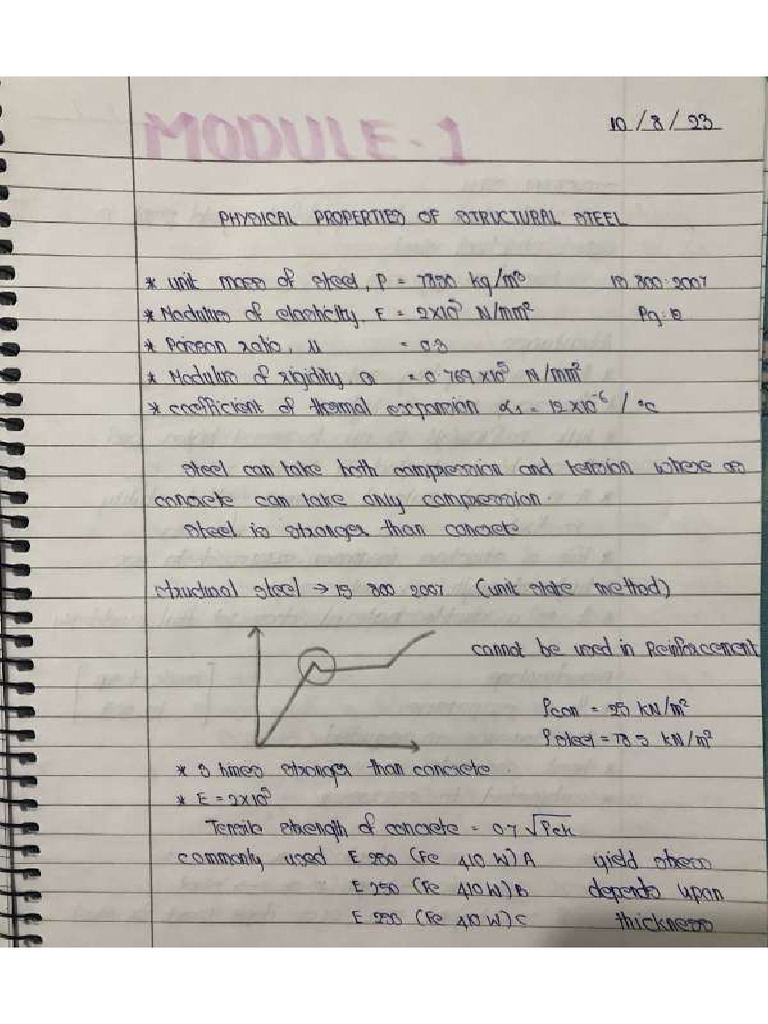 MODULE-1
10/8/23
PHYSICAL PROPERTIES OF STRUCTURAL STEEL
* Unit mass of steel, ρ = 7850 kg/m³ IS 800:2007
* Modulus of elasticity, E = 2×10⁵ N/mm² Pg:12
* Poisson ratio, μ = 0.3
* Modulus of rigidity, G = 0.769×10⁵ N/mm²
* coefficient of thermal expansion α₁ = 12×10⁻⁶ / °C
Steel can take both compression and tension where as
concrete can take only compression.
Steel is stronger than concrete
Structural steel → IS 800 2007 (limit state method)
cannot be used in Reinforcement
ρcon = 25 kN/m²
ρsteel = 78.5 kN/m²
* 3 times stronger than concrete.
* E = 2×10⁵
Tensile strength of concrete = 0.7 √Fck
commonly used E 250 (Fe 410 W) A yield stress
E 250 (Fe 410 W) B depends upon
E 250 (Fe 410 W) C thickness